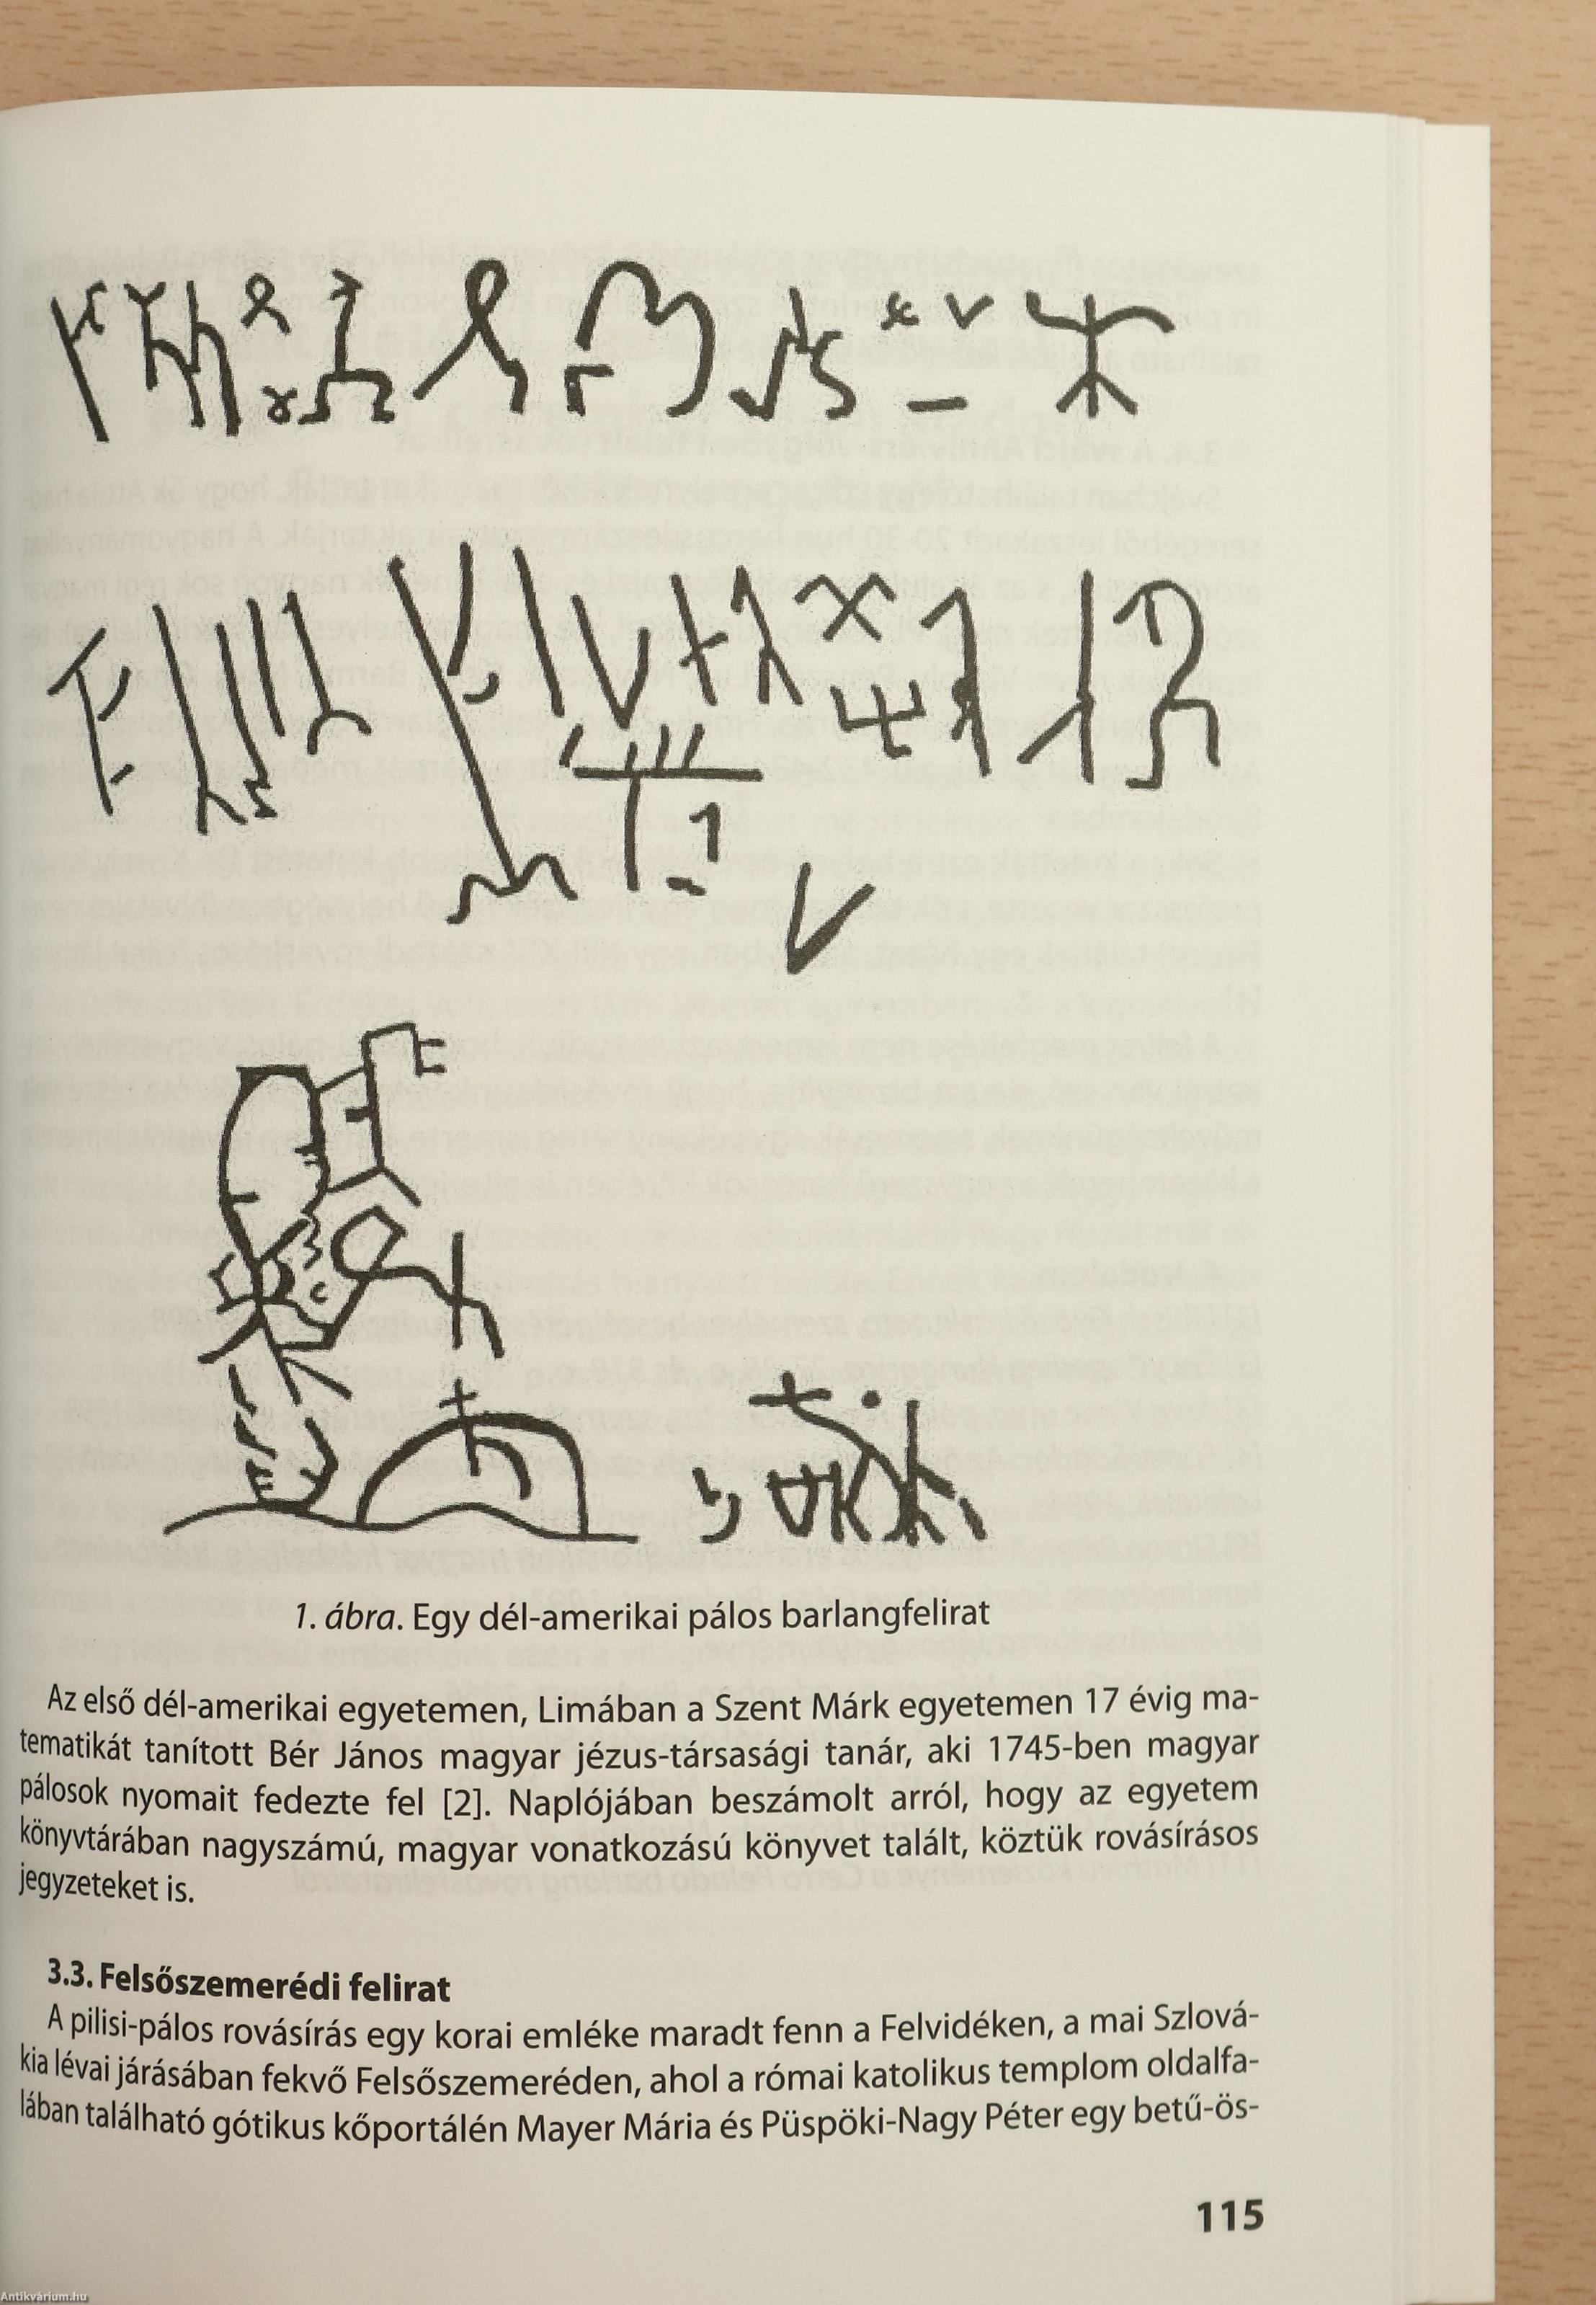 1. ábra. Egy dél-amerikai pálos barlangfelirat
Az első dél-amerikai egyetemen, Limában a Szent Márk egyetemen 17 évig ma-
tematikát tanított Bér János magyar jézus-társasági tanár, aki 1745-ben magyar
pálosok nyomait fedezte fel [2]. Naplójában beszámolt arról, hogy az egyetem
könyvtárában nagyszámú, magyar vonatkozású könyvet talált, köztük rovásírásos
jegyzeteket is.
3.3. Felsőszemerédi felirat
A pilisi-pálos rovásírás egy korai emléke maradt fenn a Felvidéken, a mai Szlová-
kia lévai járásában fekvő Felsőszemeréden, ahol a római katolikus templom oldalfa-
lában található gótikus kőportálén Mayer Mária és Püspöki-Nagy Péter egy betű-ös-
115
Antikvárium.hu